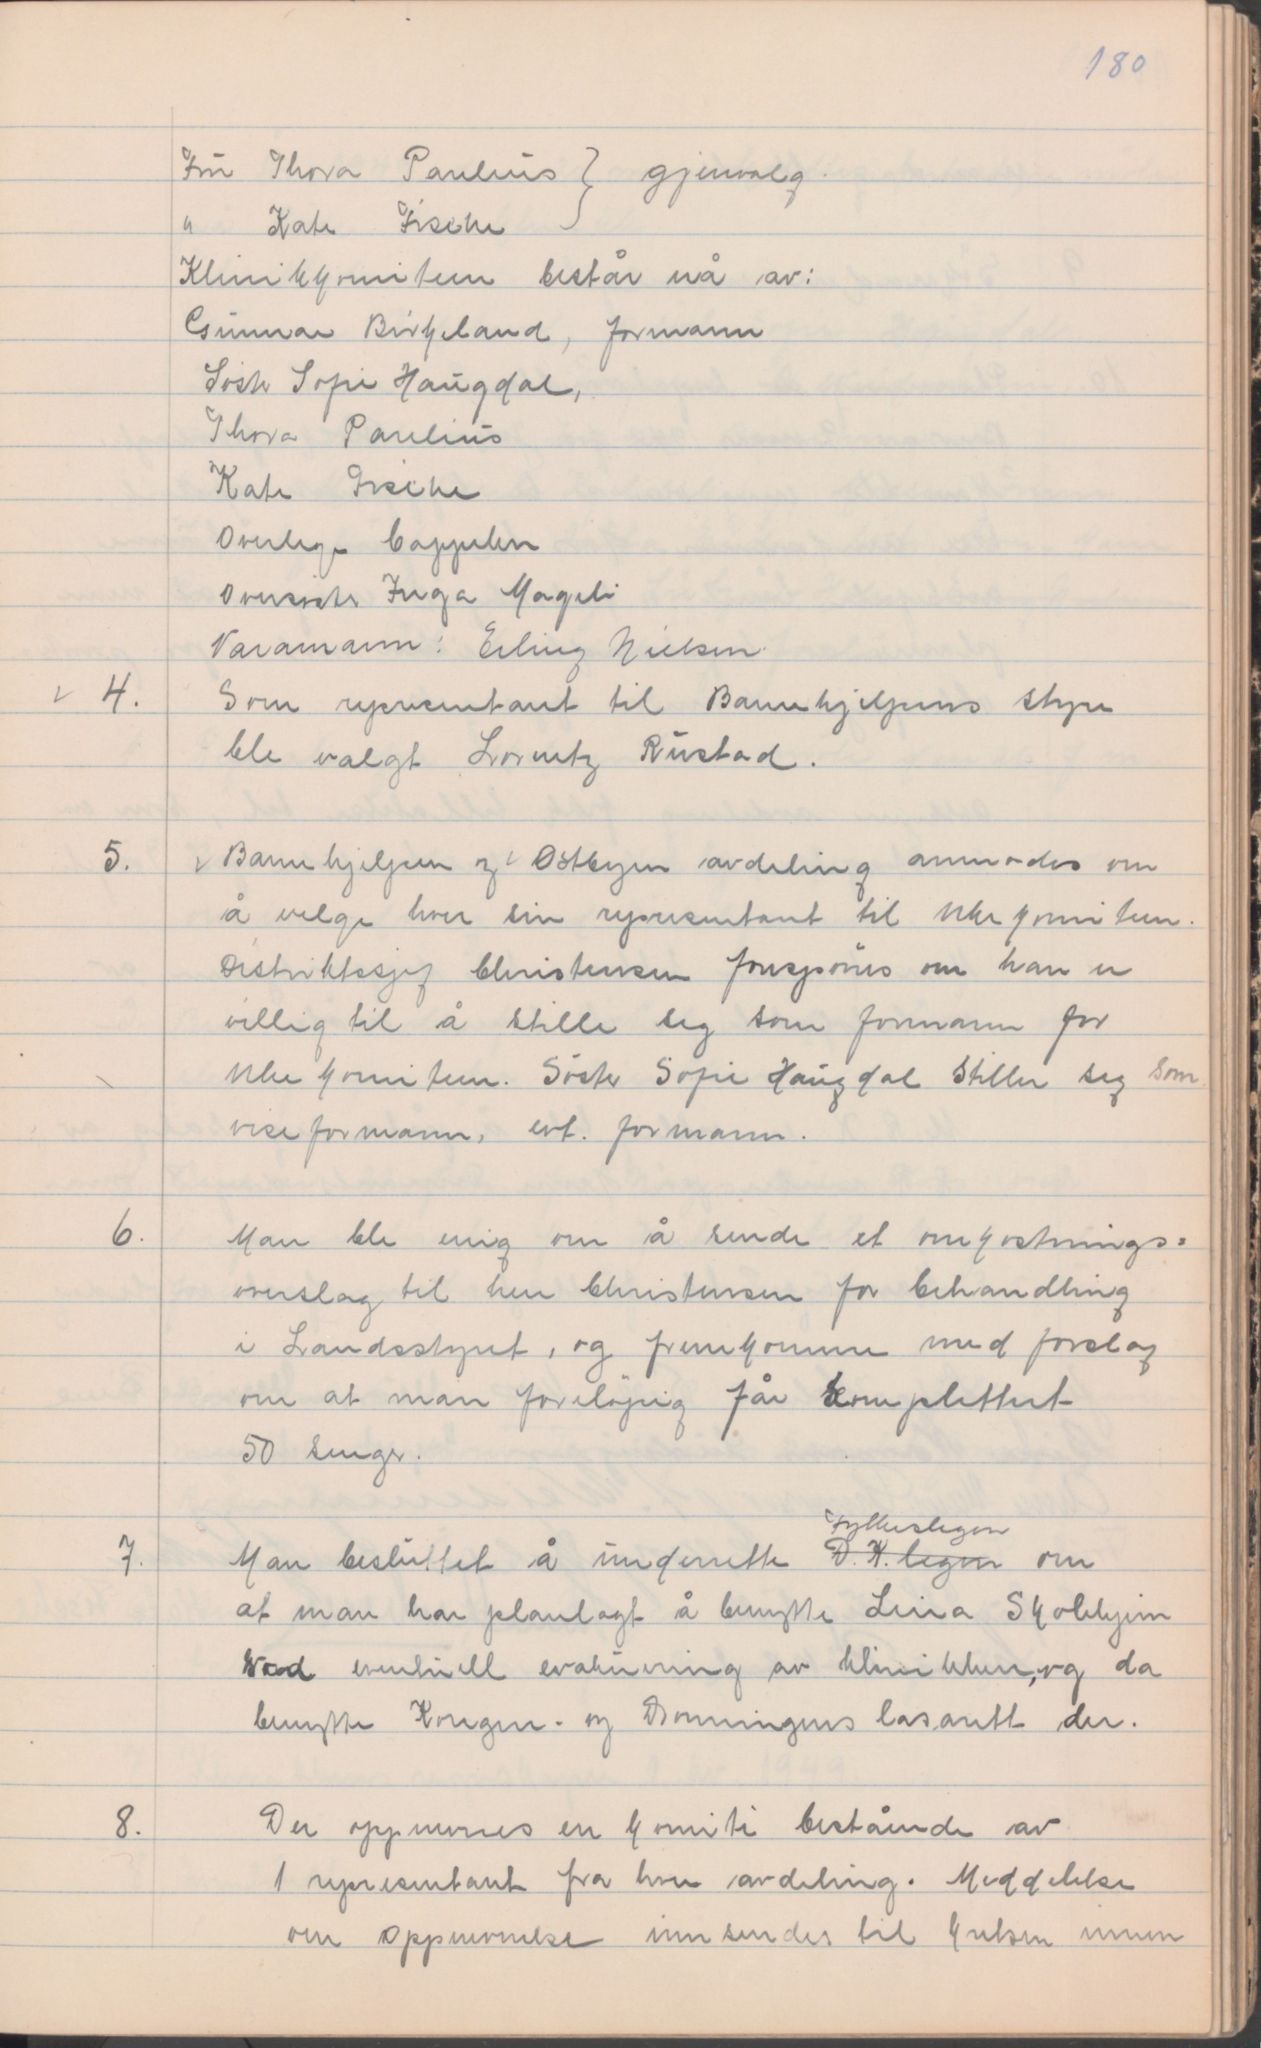 180
Frü Thora Paulüs } gjenvalg.
" Kate Fische
Klinikkomiteen består nå av:
Günnar Birkeland, formann
Søster Sofie Haügdal,
Thora Paulüs
Kate Fische
Overlege Cappelen
Oversøster Inga Mageli
Varamann: Erling Nielsen.
4. Som representant til Barnehjelpens styre
ble valgt Lorentz Rüstad.
5. Barnehjelpen og Østbyen avdeling anmodes om
å velge hver sin representant til Ukekomiteen.
Distriktssjef Christensen forespörres om han er
villig til å stille seg som formann for
Ukekomiteen. Söster Sofie Haügdal stiller seg som
viseformann, evt. formann.
6. Man ble enig om å sende et omkostnings=
overslag til herr Christensen for behandling
i Landsstyret, og fremkomme med forslag
om at man forelöpig får komplettert
50 senger.
Fylkeslegen
7. Man beslüttet å ünderrette D.K. legen om
at man har planlagt å benytte Leira Skolehjem
ved eventüell evaküering av klinikken, og da
benytte Kongen- og Dronningens lasarett der.
8. Der oppnevnes en komité bestående av
1 representant fra hver avdeling. Meddelelse
om oppnevnelse innsendes til kretsen innen